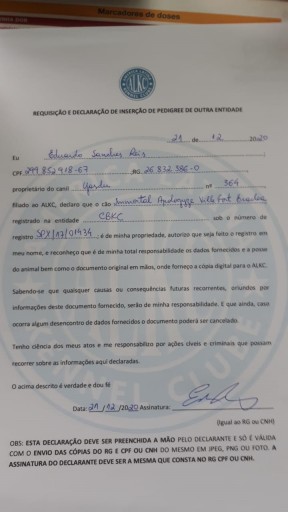 Marcadores de doses
ALKC
REQUISIÇÃO E DECLARAÇÃO DE INSERÇÃO DE PEDIGREE DE OUTRA ENTIDADE
21 de 12 2020
Eu Eduardo Sanches Reis
CPF 299.852.918-67 RG 26 832 386-0
proprietário do canil nº 364
filiado ao ALKC, declaro que o cão Immortal Apologyze Ville Fort Brasilia
registrado na entidade CBKC sob o número de
registro SPX/17/01434 é de minha propriedade, autorizo que seja feito o registro em
meu nome, e reconheço que é de minha total responsabilidade os dados fornecidos e a posse
do animal bem como o documento original em mãos, onde forneço a cópia digital para o ALKC.
Sabendo-se que quaisquer causas ou consequências futuras recorrentes, oriundos por
informações deste documento fornecido, serão de minha responsabilidade. E que ainda, caso
ocorra algum desencontro de dados fornecidos o documento poderá ser cancelado.
Tenho ciência dos meus atos e me responsabilizo por ações cíveis e criminais que possam
recorrer sobre as informações aqui declaradas.
O acima descrito é verdade e dou fé
Data: 21/12/2020 Assinatura:
(Igual ao RG ou CNH)
OBS: ESTA DECLARAÇÃO DEVE SER PREENCHIDA A MÃO PELO DECLARANTE E SÓ É VÁLIDA
COM O ENVIO DAS CÓPIAS DO RG E CPF OU CNH DO MESMO EM JPEG, PNG OU FOTO. A
ASSINATURA DO DECLARANTE DEVE SER A MESMA QUE CONSTA NO RG CPF OU CNH.